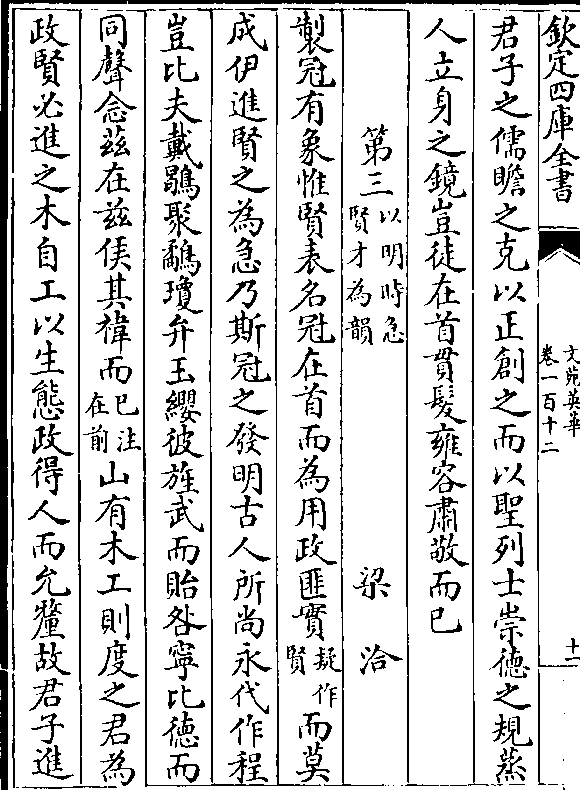 欽定四庫全書
文苑英華
卷一百十二
十一
君子之儒瞻之克以正創之而以聖列士崇德之規蒸
人立身之鏡豈徒在首貫髮雍容肅敬而已
第三以明時急賢才為韻 梁洽
製冠有象惟賢表名冠在首而為用政匪實疑作賢而莫
成伊進賢之為急乃斯冠之發明古人所尚永代作程
豈比夫戴鶡聚鷸瓊弁玉纓彼旌武而貽咎寧比德而
同聲念茲在茲俟其禕而已注在前山有木工則度之君為
政賢必進之木自工以生態政得人而允釐故君子進